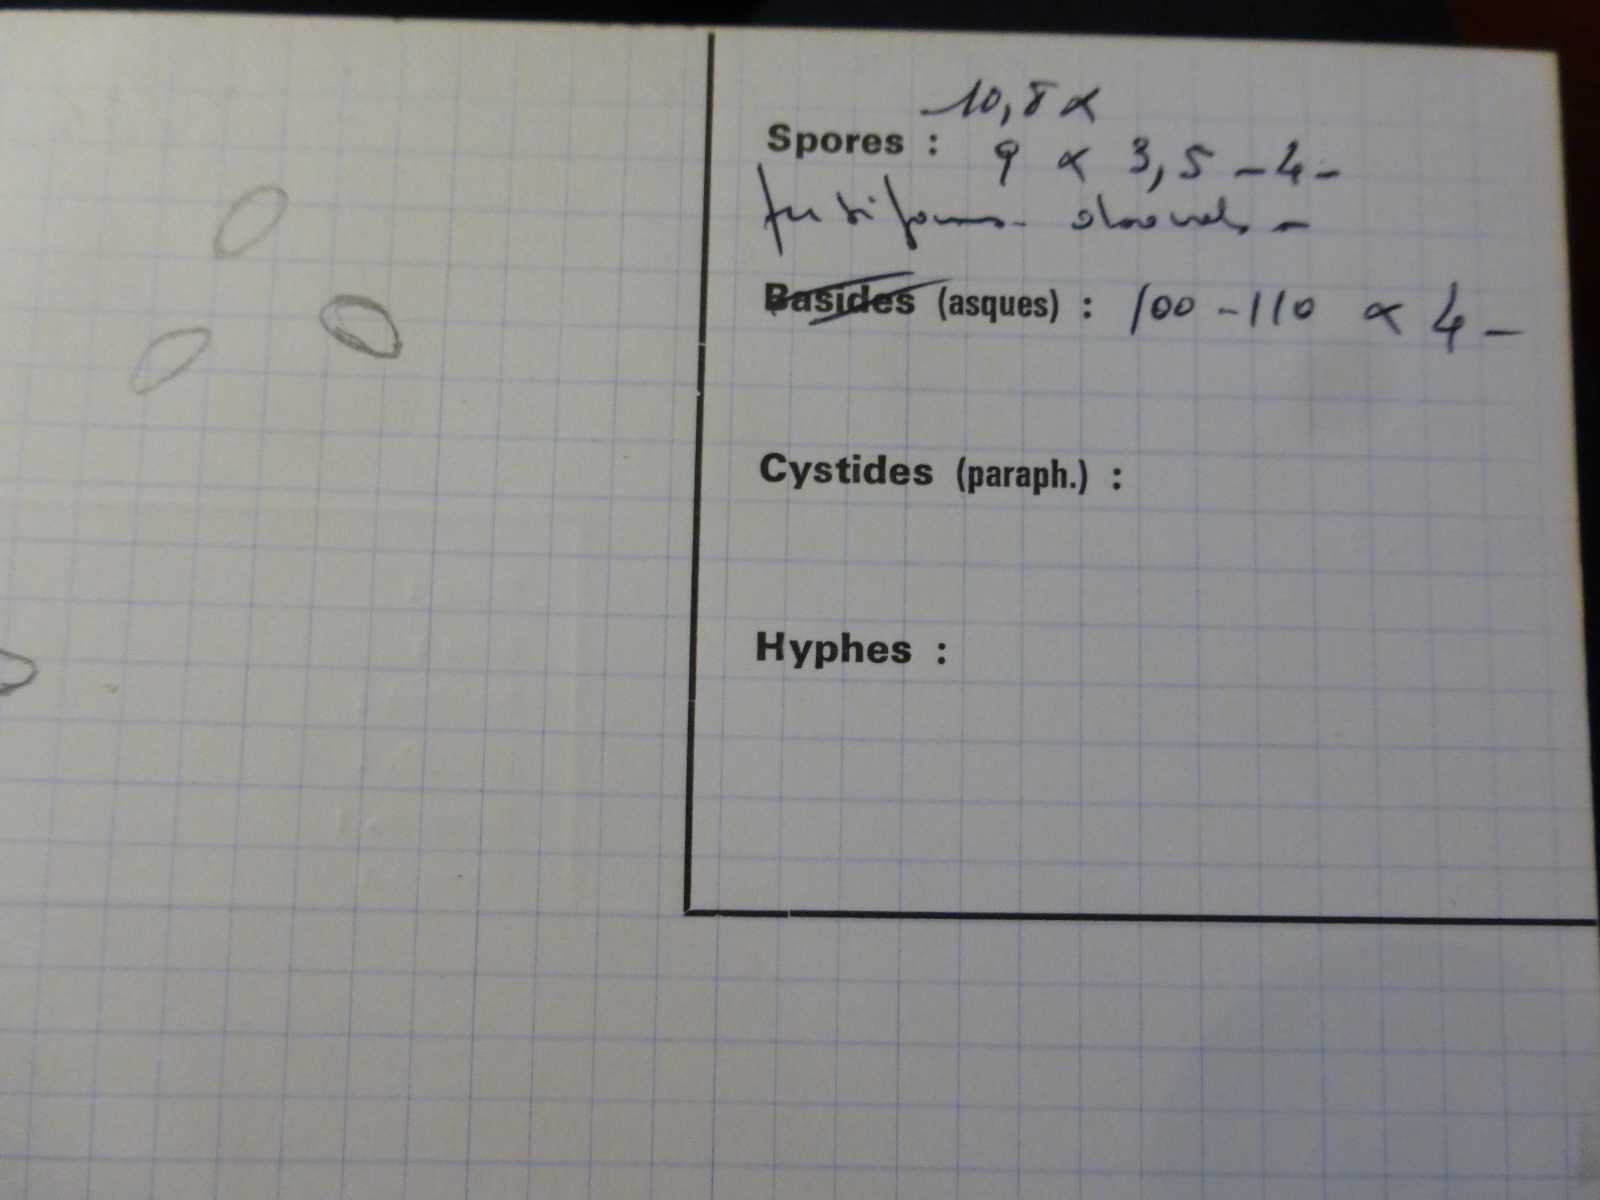 10,8 x
Spores : 9 x 3,5 - 4 -
fusiformes -
Basides (asques) : 100 - 110 x 4 -
Cystides (paraph.) :
Hyphes :